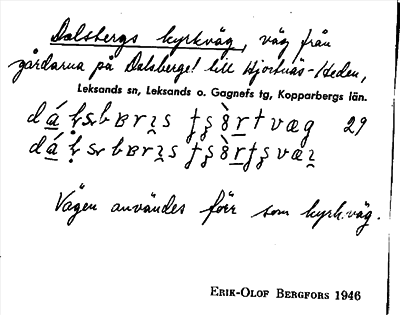 Dalsbergs kyrkväg, väg från
gårdarna på Dalsberget till Hjortnäs-Heden,
Leksands sn, Leksands o. Gagnefs tg, Kopparbergs län.
29
Vägen användes förr som kyrkväg.
ERIK-OLOF BERGFORS 1946